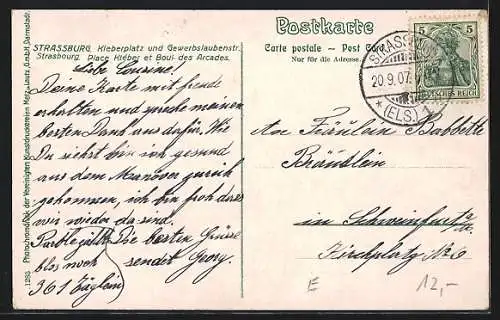 Postkarte
Carte postale – Post Card
Nur für die Adresse.
STRASSBURG Kleberplatz und Gewerbslaubenstr.
Strasbourg. Place Kléber et Boul. des Arcades.
1293 Photochromiedruck der Vereinigten Kunstdruckereien Metz, G.m.b.H. Darmstadt.
5 5
DEUTSCHES REICH
STRASSBURG
20.9.07.
* (ELS.) 1
Liebe Cousine!
Deine Karte mit freude
erhalten und spreche meinen
besten Dank aus dafür. Wie
Du siehst bin ich gesund
aus dem Manöver zurück
gekommen, ich bin froh dass
wir wieder da sind.
Die besten Grüsse
blos noch sendet Georg.
361 Täglein
An Fräulein Babbette
Bräutlein
in Schweinfurt a/M.
Kirchplatz No 6
E
12,-